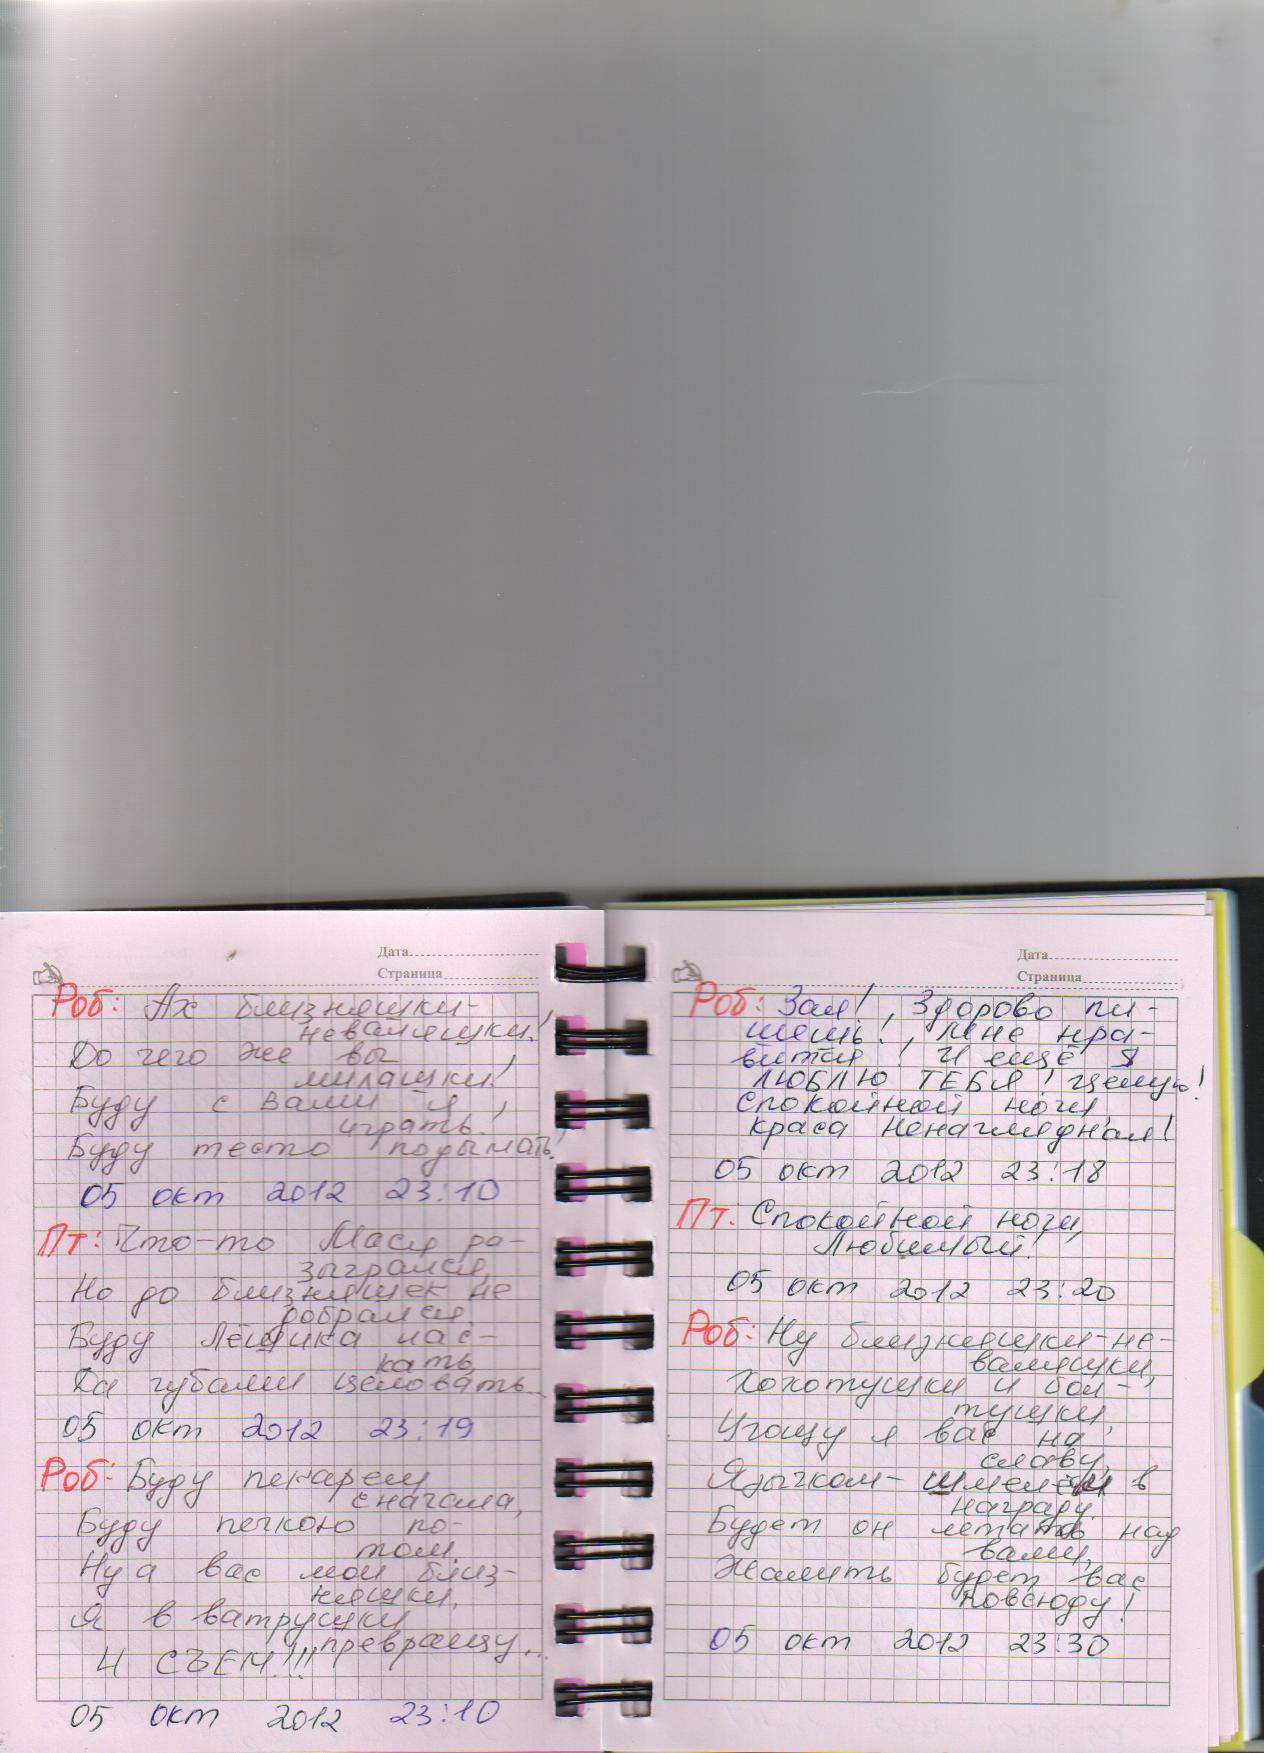 Дата
Страница
Роб: Ах близняшки-
неваляшки!
До чего же вы
милашки!
Буду с вами я
играть!
Буду тесто подымать!
05 окт 2012 23:10
Пт: Что-то Мася ра-
загрался,
Но до близняшек не
добрался
Буду Лёщика лас-
кать,
Да губами целовать...
05 окт 2012 23:19
Роб: Буду пекарем
сначала,
Буду печкою по-
том.
Ну а вас мои близ-
няшки,
Я в ватрушки
превращу...
И СЪЕМ!!!
05 окт 2012 23:10
Дата
Страница
Роб: Зая!, Здорово пи-
шешь!, мне нра-
вится! И ещё Я
ЛЮБЛЮ ТЕБЯ! целую!
Спокойной ночи,
краса ненаглядная!
05 окт 2012 23:18
Пт. Спокойной ночи,
Любимый!
05 окт 2012 23:20
Роб: Ну близняшки-не-
валяшки,
Хохотушки и бол-
тушки,
Угощу я вас на
славу,
Язычком-шмелём в
награду.
Будет он летать над
вами,
Жалить будет вас
повсюду!
05 окт 2012 23:30